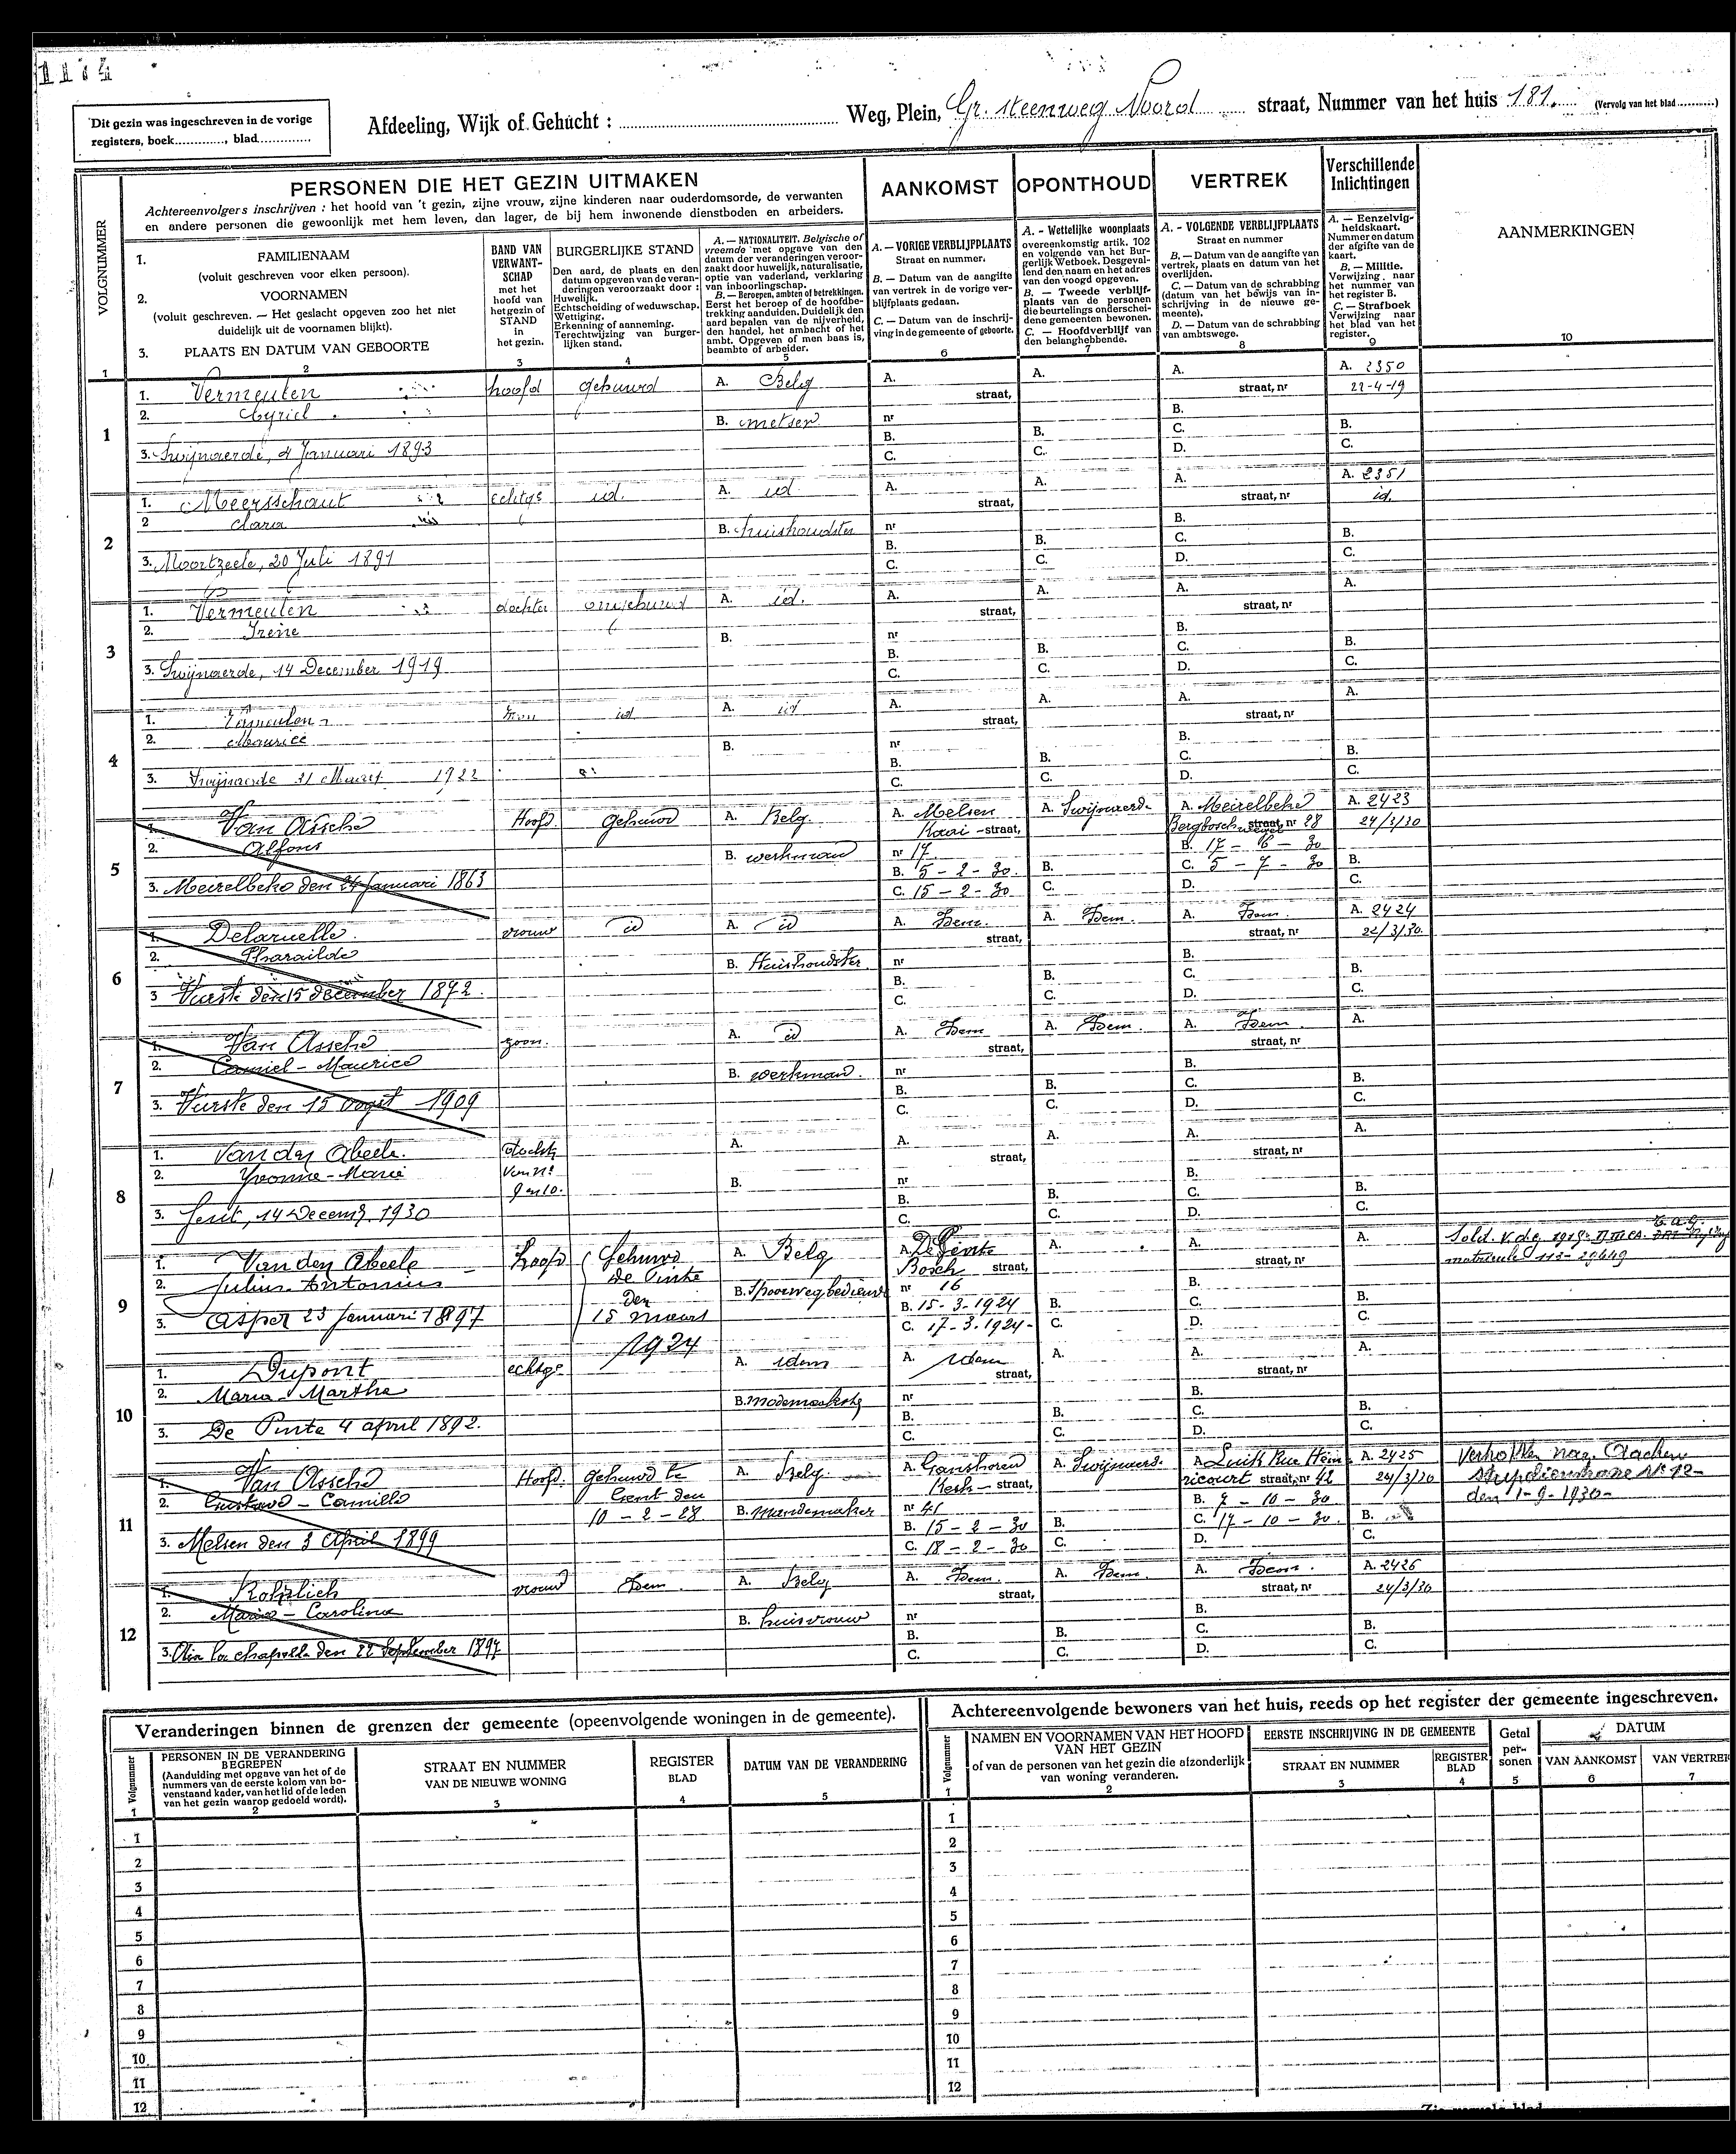 1174
Dit gezin was ingeschreven in de vorige
registers, boek............, blad............
Afdeeling, Wijk of Gehucht : ............ Weg, Plein, Gr. steenweg Noord straat, Nummer van het huis 181. (Vervolg van het blad............)
VOLGNUMMER
PERSONEN DIE HET GEZIN UITMAKEN
Achtereenvolgers inschrijven : het hoofd van 't gezin, zijne vrouw, zijne kinderen naar ouderdomsorde, de verwanten
en andere personen die gewoonlijk met hem leven, dan lager, de bij hem inwonende dienstboden en arbeiders.
AANKOMST
OPONTHOUD
VERTREK
Verschillende
Inlichtingen
AANMERKINGEN
1. FAMILIENAAM
(voluit geschreven voor elken persoon).
2. VOORNAMEN
(voluit geschreven. — Het geslacht opgeven zoo het niet
duidelijk uit de voornamen blijkt).
3. PLAATS EN DATUM VAN GEBOORTE
BAND VAN
VERWANT-
SCHAP
met het
hoofd van
het gezin of
STAND
in
het gezin.
BURGERLIJKE STAND
Den aard, de plaats en den
datum opgeven van de veran-
deringen veroorzaakt door :
Huwelijk.
Echtscheiding of weduwschap.
Wettiging.
Erkenning of anneming.
Terechtwijzing van burger-
lijken stand.
A. — NATIONALITEIT. Belgische of
vreemde met opgave van den
datum der veranderingen veroor-
zaakt door huwelijk, naturalisatie,
optie van vaderland, verklaring
van inboorlingschap.
B. — Beroepen, ambten of betrekkingen.
Eerst het beroep of de hoofdbe-
trekking aanduiden. Duidelijk den
aard bepalen van de nijverheid,
den handel, het ambacht of het
ambt. Opgeven of men baas is,
beambte of arbeider.
A. — VORIGE VERBLIJFPLAATS
Straat en nummer.
B. — Datum van de aangifte
van vertrek in de vorige ver-
blijfplaats gedaan.
C. — Datum van de inschrij-
ving in de gemeente of geboorte.
A. - Wettelijke woonplaats
overeenkomstig artik. 102
en volgende van het Bur-
gerlijk Wetboek. Desgeval-
lend den naam en het adres
van den voogd opgeven.
B. — Tweede verblijf-
plaats van de personen
die beurtelings onderschei-
dene gemeenten bewonen.
C. — Hoofdverblijf van
den belanghebbende.
A. - VOLGENDE VERBLIJFPLAATS
Straat en nummer
B. — Datum van de aangifte van
vertrek, plaats en datum van het
overlijden.
C. — Datum van de schrabbing
(datum van het bewijs van in-
schrijving in de nieuwe ge-
meente).
D. — Datum van de schrabbing
van ambtswege.
A. — Eenzelvig-
heidskaart.
Nummer en datum
der afgifte van de
kaart.
B. — Militie.
Verwijzing naar
het nummer van
het register B.
C. — Strafboek
Verwijzing naar
het blad van het
register.
1 2 3 4 5 6 7 8 9 10
1
1. Vermeulen hoofd gehuwd A. Belg A. straat, A. A. straat, nr A. 2350
22-4-19
2. Cyriel B. metser nr B. B.
3. Swijnaerde, 4 Januari 1893 B. C. B. C. C. D. C.
2
1. Meersschaut echtge id. A. id A. straat, A. A. straat, nr A. 2351
id.
2 Clara B. huishoudster nr B. B.
3. Moortzeele, 20 Juli 1891 B. C. B. C. C. D. C.
3
1. Vermeulen dochter ongehuwd A. id. A. straat, A. A. straat, nr A.
2. Irène B. nr B. B.
3. Swijnaerde, 14 December 1919 B. C. B. C. C. D. C.
4
1. Vermeulen zoon id A. id A. straat, A. A. straat, nr A.
2. Maurice B. nr B. B.
3. Swijnaerde 31 Maart 1922 B. C. B. C. C. D. C.
5
1. Van Assche Hoofd gehuwd A. Belg A. Melsen A. Swijnaerde A. Meirelbeke A. 2423
Kaai - straat, Bergbosch wegel straat, nr 28 24/3/30
2. Alfons B. werkman nr 17 B. 17 - 6 - 30
3. Meirelbeke den 24 Januari 1863 B. 5 - 2 - 30. B. C. 5 - 7 - 30 B.
C. 15 - 2 - 30 C. D. C.
6
1. Delaruelle vrouw id A. id A. Idem. straat, A. Idem. A. Idem. straat, nr A. 2424
22/3/30.
2. Pharaïlde B. Huishoudster nr B. B.
3 Vurste den 15 december 1872. B. C. B. C. C. D. C.
7
1. Van Assche zoon. A. id A. Idem straat, A. Idem. A. Idem. straat, nr A.
2. Camiel - Maurice B. werkman. nr B. B.
3. Vurste den 15 oogst 1909 B. C. B. C. C. D. C.
8
1. Van den Abeele. docht. A. A. straat, A. A. straat, nr A.
2. Yvonne - Marie van n° B. nr B. B.
9 en 10.
3. Gent, 14 Decemb. 1930 B. C. B. C. C. D. C.
9
1. Van den Abeele hoofd Gehuwd A. Belg A. De Pinte A. A. straat, nr A. Sold. v. d. 1919
2. Julius. Antonius De Pinte B. Spoorwegbediende Bosch straat, matricule 112-29649
den nr 16 B.
3. Asper 23 Januari 1897 15 maart B. 15-3-1924 B. C. B.
1924 C. 17-3-1924- C. D. C.
10
1. Dupont echtge A. idem A. idem straat, A. A. straat, nr A.
2. Maria - Martha B. modemaakster nr B. B.
3. De Pinte 4 april 1892. B. C. B. C. C. D. C.
11
1. Van Assche Hoofd. gehuwd te A. Belg. A. Ganshoren A. Swijnaerd. A. Luik Rue Hem- A. 2425 Verhollen naar Aachen
Kerk - straat, ricourt straat, nr 42 24/3/30
2. Gustave - Camille Gent den B. mandemaker nr 41 B. 7 - 10 - 30 den 1-9-1930-
10 - 2 - 28
3. Melsen den 3 April 1899 B. 15 - 2 - 30 B. C. 17 - 10 - 30. B.
C. 18 - 2 - 30 C. D. C.
12
1. Rohrlich vrouw Idem. A. Belg A. Idem. straat, A. Idem. A. Idem. straat, nr A. 2426
24/3/30
2. Maria - Carolina B. huisvrouw nr B. B.
3. Aix la chapelle den 22 September 1897 B. C. B. C. C. D. C.
Veranderingen binnen de grenzen der gemeente (opeenvolgende woningen in de gemeente).
Volgnummer
PERSONEN IN DE VERANDERING
BEGREPEN
(Aanduiding met opgave van het of de
nummers van de eerste kolom van bo-
venstaand kader, van het lid of de leden
van het gezin waarop gedoeld wordt).
STRAAT EN NUMMER
VAN DE NIEUWE WONING
REGISTER
BLAD
DATUM VAN DE VERANDERING
1 2 3 4 5
1
2
3
4
5
6
7
8
9
10
11
12
Achtereenvolgende bewoners van het huis, reeds op het register der gemeente ingeschreven.
Volgnummer
NAMEN EN VOORNAMEN VAN HET HOOFD
VAN HET GEZIN
of van de personen van het gezin die afzonderlijk
van woning veranderen.
EERSTE INSCHRIJVING IN DE GEMEENTE
STRAAT EN NUMMER
REGISTER
BLAD
Getal
per-
sonen
DATUM
VAN AANKOMST
VAN VERTREK
1 2 3 4 5 6 7
1
2
3
4
5
6
7
8
9
10
11
12